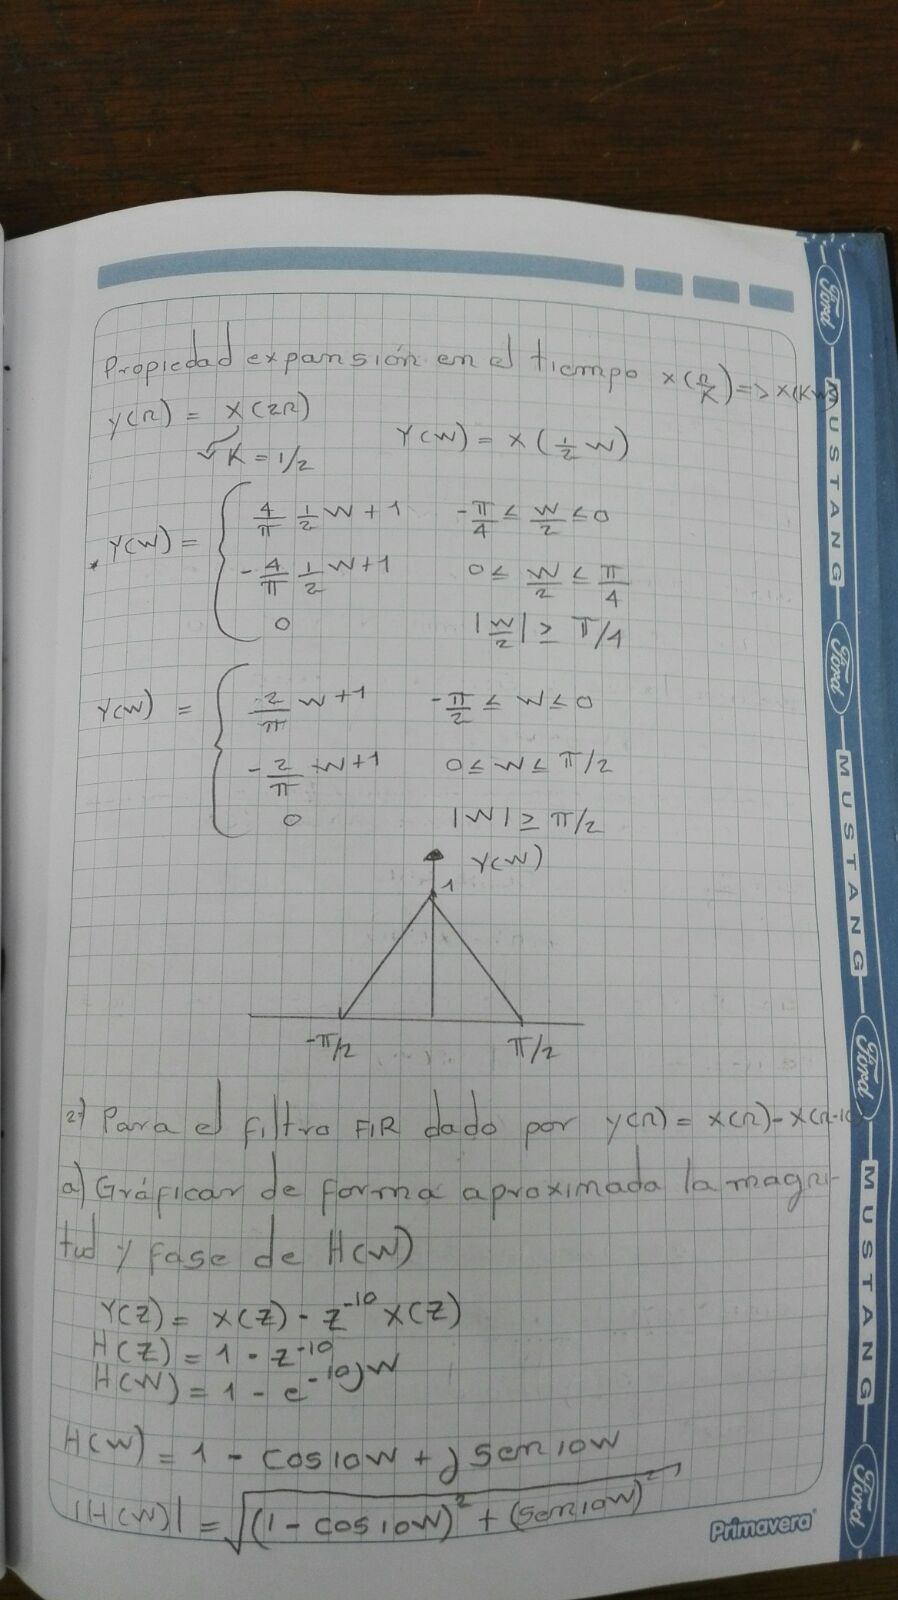 Propiedad expansión en el tiempo x(n/K) => X(KW)
Y(n) = X(2n)
K = 1/2
Y(W) = X(1/2 W)
Y(W) = { 4/π 1/2 W + 1    -π/4 ≤ W/2 ≤ 0
-4/π 1/2 W + 1    0 ≤ W/2 ≤ π/4
0    |W/2| ≥ π/4
Y(W) = { 2/π W + 1    -π/2 ≤ W ≤ 0
-2/π W + 1    0 ≤ W ≤ π/2
0    |W| ≥ π/2
Y(W)
1
-π/2    π/2
2) Para el filtro FIR dado por y(n) = x(n) - x(n-10)
a) Gráficar de forma aproximada la magni-
tud y fase de H(W)
Y(Z) = X(Z) - Z^-10 X(Z)
H(Z) = 1 - Z^-10
H(W) = 1 - e^-10jW
H(W) = 1 - cos10W + j sen10W
|H(W)| = √((1 - cos10W)² + (sen10W)²)
Primavera
Ford
MUSTANG
Ford
MUSTANG
Ford
MUSTANG
Ford